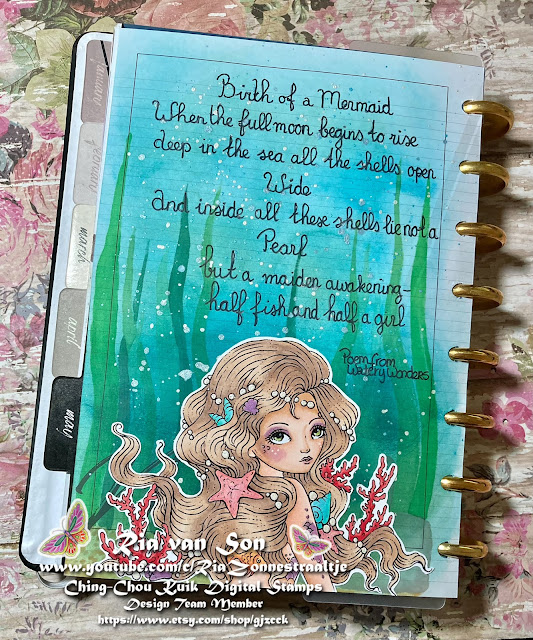 Birth of a Mermaid
When the full moon begins to rise
deep in the sea all the shells open
Wide
And inside all these shells lie not a
Pearl
but a maiden awakening-
half fish and half a girl
Poem from
Watery Wonders
january
february
march
april
may
Ria van Son
www.youtube.com/c/RiaZonnestraaltje
Ching-Chou Kuik Digital Stamps
Design Team Member
https://www.etsy.com/shop/gjzcck